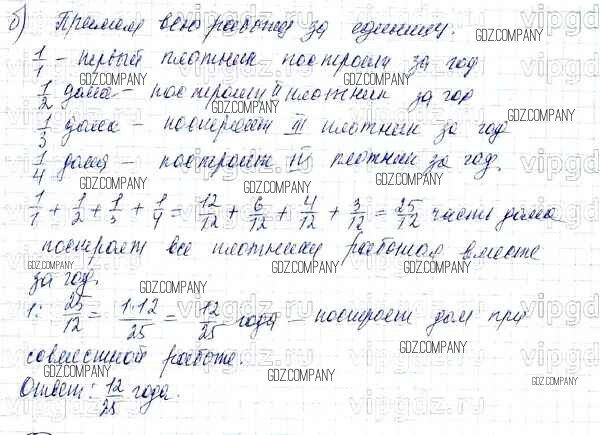 б) Примем всю работу за единицу.
1/1 - первый плотник построит за год
1/2 дома - построит II плотник за год
1/3 дома - построит III плотник за год
1/4 дома - построит IV плотник за год.
1/1 + 1/2 + 1/3 + 1/4 = 12/12 + 6/12 + 4/12 + 3/12 = 25/12 части дома
построят все плотники работая вместе
за год.
1 : 25/12 = 1·12/25 = 12/25 года - построят дом при
совместной работе.
Ответ: 12/25 года.